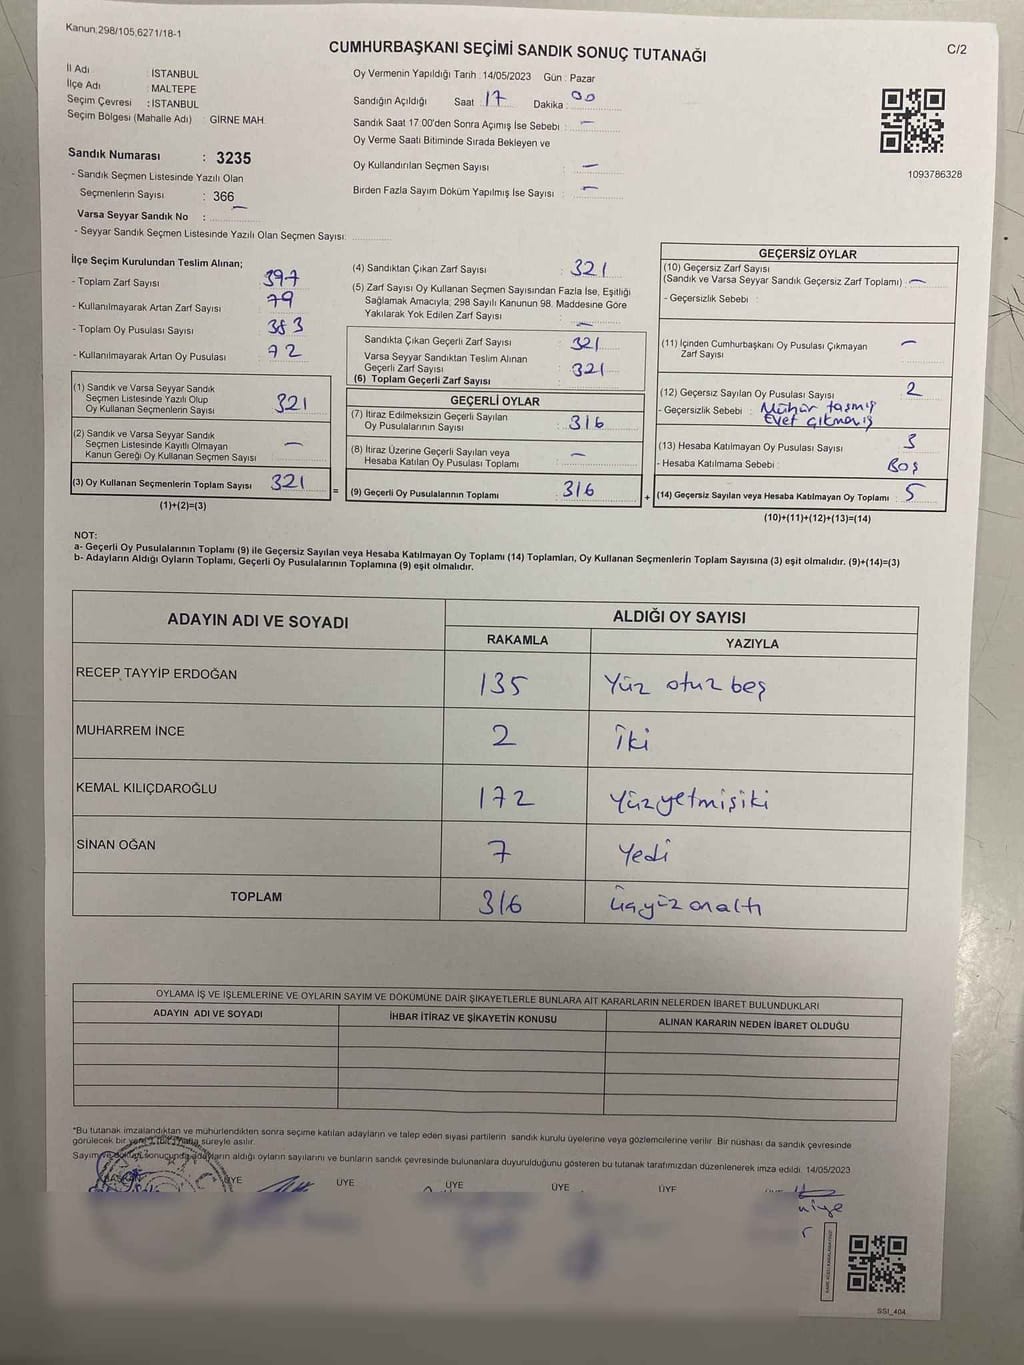 Kanun;298/105,6271/18-1
C/2
CUMHURBAŞKANI SEÇİMİ SANDIK SONUÇ TUTANAĞI
İl Adı : İSTANBUL
İlçe Adı : MALTEPE
Seçim Çevresi : İSTANBUL
Seçim Bölgesi (Mahalle Adı) : GİRNE MAH.
Sandık Numarası : 3235
- Sandık Seçmen Listesinde Yazılı Olan
Seçmenlerin Sayısı : 366
Varsa Seyyar Sandık No : —
- Seyyar Sandık Seçmen Listesinde Yazılı Olan Seçmen Sayısı:
Oy Vermenin Yapıldığı Tarih : 14/05/2023 Gün : Pazar
Sandığın Açıldığı Saat 17 Dakika : 00
Sandık Saat 17.00'den Sonra Açımış İse Sebebi : —
Oy Verme Saati Bitiminde Sırada Bekleyen ve
Oy Kullandırılan Seçmen Sayısı : —
Birden Fazla Sayım Döküm Yapılmış İse Sayısı : —
1093786328
İlçe Seçim Kurulundan Teslim Alınan;
- Toplam Zarf Sayısı : 397
- Kullanılmayarak Artan Zarf Sayısı : 79
- Toplam Oy Pusulası Sayısı : 383
- Kullanılmayarak Artan Oy Pusulası : 72
(1) Sandık ve Varsa Seyyar Sandık
Seçmen Listesinde Yazılı Olup
Oy Kullanan Seçmenlerin Sayısı 321
(2) Sandık ve Varsa Seyyar Sandık
Seçmen Listesinde Kayıtlı Olmayan
Kanun Gereği Oy Kullanan Seçmen Sayısı —
(3) Oy Kullanan Seçmenlerin Toplam Sayısı 321
(1)+(2)=(3)
(4) Sandıktan Çıkan Zarf Sayısı : 321
(5) Zarf Sayısı Oy Kullanan Seçmen Sayısından Fazla İse, Eşitliği
Sağlamak Amacıyla; 298 Sayılı Kanunun 98. Maddesine Göre
Yakılarak Yok Edilen Zarf Sayısı : —
Sandıkta Çıkan Geçerli Zarf Sayısı : 321
Varsa Seyyar Sandıktan Teslim Alınan
Geçerli Zarf Sayısı : 321
(6) Toplam Geçerli Zarf Sayısı
GEÇERLİ OYLAR
(7) İtiraz Edilmeksizin Geçerli Sayılan
Oy Pusulalarının Sayısı : 316
(8) İtiraz Üzerine Geçerli Sayılan veya
Hesaba Katılan Oy Pusulası Toplamı : —
= (9) Geçerli Oy Pusulalarının Toplamı : 316
GEÇERSİZ OYLAR
(10) Geçersiz Zarf Sayısı
(Sandık ve Varsa Seyyar Sandık Geçersiz Zarf Toplamı) : —
- Geçersizlik Sebebi :
(11) İçinden Cumhurbaşkanı Oy Pusulası Çıkmayan
Zarf Sayısı —
(12) Geçersiz Sayılan Oy Pusulası Sayısı : 2
- Geçersizlik Sebebi : Mühür taşmış
Evet çıkmamış
(13) Hesaba Katılmayan Oy Pusulası Sayısı : 3
- Hesaba Katılmama Sebebi : Boş
+ (14) Geçersiz Sayılan veya Hesaba Katılmayan Oy Toplamı : 5
(10)+(11)+(12)+(13)=(14)
NOT:
a- Geçerli Oy Pusulalarının Toplamı (9) ile Geçersiz Sayılan veya Hesaba Katılmayan Oy Toplamı (14) Toplamları, Oy Kullanan Seçmenlerin Toplam Sayısına (3) eşit olmalıdır. (9)+(14)=(3)
b- Adayların Aldığı Oyların Toplamı, Geçerli Oy Pusulalarının Toplamına (9) eşit olmalıdır.
ADAYIN ADI VE SOYADI ALDIĞI OY SAYISI
RAKAMLA YAZIYLA
RECEP TAYYİP ERDOĞAN 135 Yüz otuz beş
MUHARREM İNCE 2 İki
KEMAL KILIÇDAROĞLU 172 Yüzyetmişiki
SİNAN OĞAN 7 Yedi
TOPLAM 316 Üçyüz onaltı
OYLAMA İŞ VE İŞLEMLERİNE VE OYLARIN SAYIM VE DÖKÜMÜNE DAİR ŞİKAYETLERLE BUNLARA AİT KARARLARIN NELERDEN İBARET BULUNDUKLARI
ADAYIN ADI VE SOYADI İHBAR İTİRAZ VE ŞİKAYETİN KONUSU ALINAN KARARIN NEDEN İBARET OLDUĞU
*Bu tutanak imzalandıktan ve mühürlendikten sonra seçime katılan adayların ve talep eden siyasi partilerin sandık kurulu üyelerine veya gözlemcilerine verilir. Bir nüshası da sandık çevresinde
görülecek bir yere süreyle asılır.
Sayım ve döküm sonucunda adayların aldığı oyların sayılarını ve bunların sandık çevresinde bulunanlara duyurulduğunu gösteren bu tutanak tarafımızdan düzenlenerek imza edildi. 14/05/2023
BAŞKAN ÜYE ÜYE ÜYE ÜYE ÜYE
SSI_404